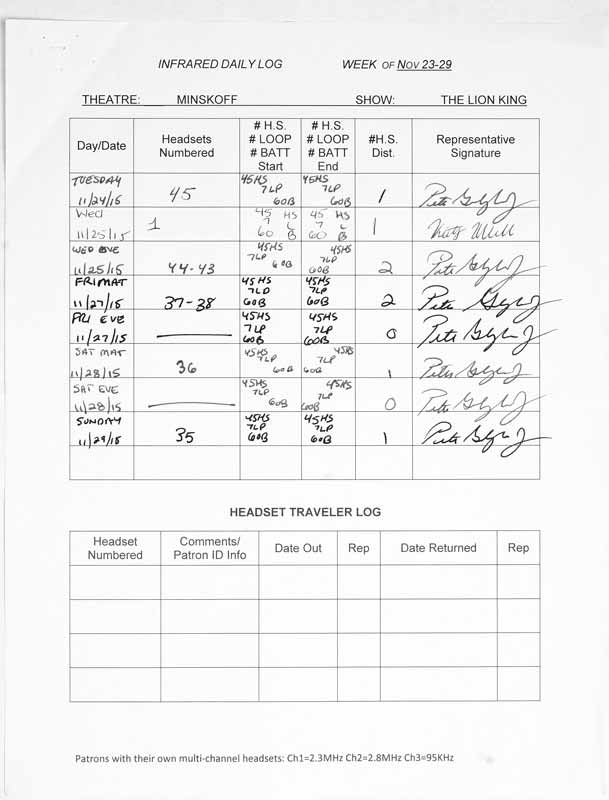 INFRARED DAILY LOG WEEK OF NOV 23-29
THEATRE: MINSKOFF SHOW: THE LION KING
Day/Date Headsets Numbered # H.S. # LOOP # BATT Start # H.S. # LOOP # BATT End #H.S. Dist. Representative Signature
TUESDAY 11/24/15 45 45HS 7LP 60B 45HS 7LP 60B 1
Wed 11/25/15 1 45 HS 7 L 60 B 45 HS 7 L 60 B 1
WED EVE 11/25/15 44-43 45HS 7LP 60B 45HS 7LP 60B 2
FRI MAT 11/27/15 37-38 45HS 7LP 60B 45HS 7LP 60B 2
FRI EVE 11/27/15 — 45HS 7LP 60B 45HS 7LP 60B 0
SAT MAT 11/28/15 36 45HS 7LP 60B 45HS 7LP 60B 1
SAT EVE 11/28/15 — 45HS 7LP 60B 45HS 7LP 60B 0
SUNDAY 11/29/15 35 45HS 7LP 60B 45HS 7LP 60B 1
HEADSET TRAVELER LOG
Headset Numbered Comments/ Patron ID Info Date Out Rep Date Returned Rep
Patrons with their own multi-channel headsets: Ch1=2.3MHz Ch2=2.8MHz Ch3=95KHz